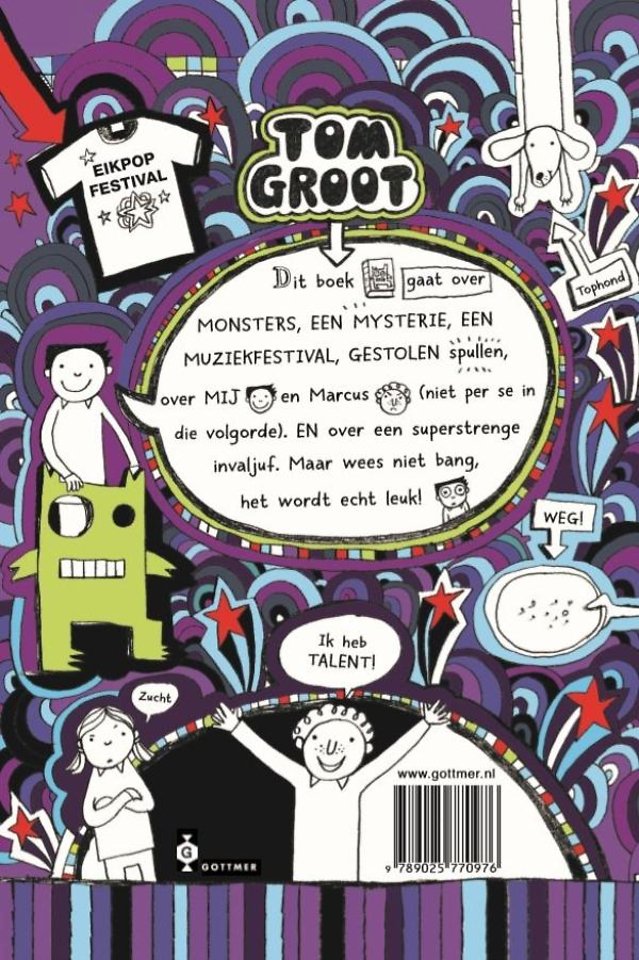 EIKPOP
FESTIVAL
TOM
GROOT
Tophond
Dit boek gaat over
MONSTERS, EEN MYSTERIE, EEN
MUZIEKFESTIVAL, GESTOLEN spullen,
over MIJ en Marcus (niet per se in
die volgorde). EN over een superstrenge
invaljuf. Maar wees niet bang,
het wordt echt leuk!
WEG!
Ik heb
TALENT!
Zucht
www.gottmer.nl
G
GOTTMER
9 789025 770976